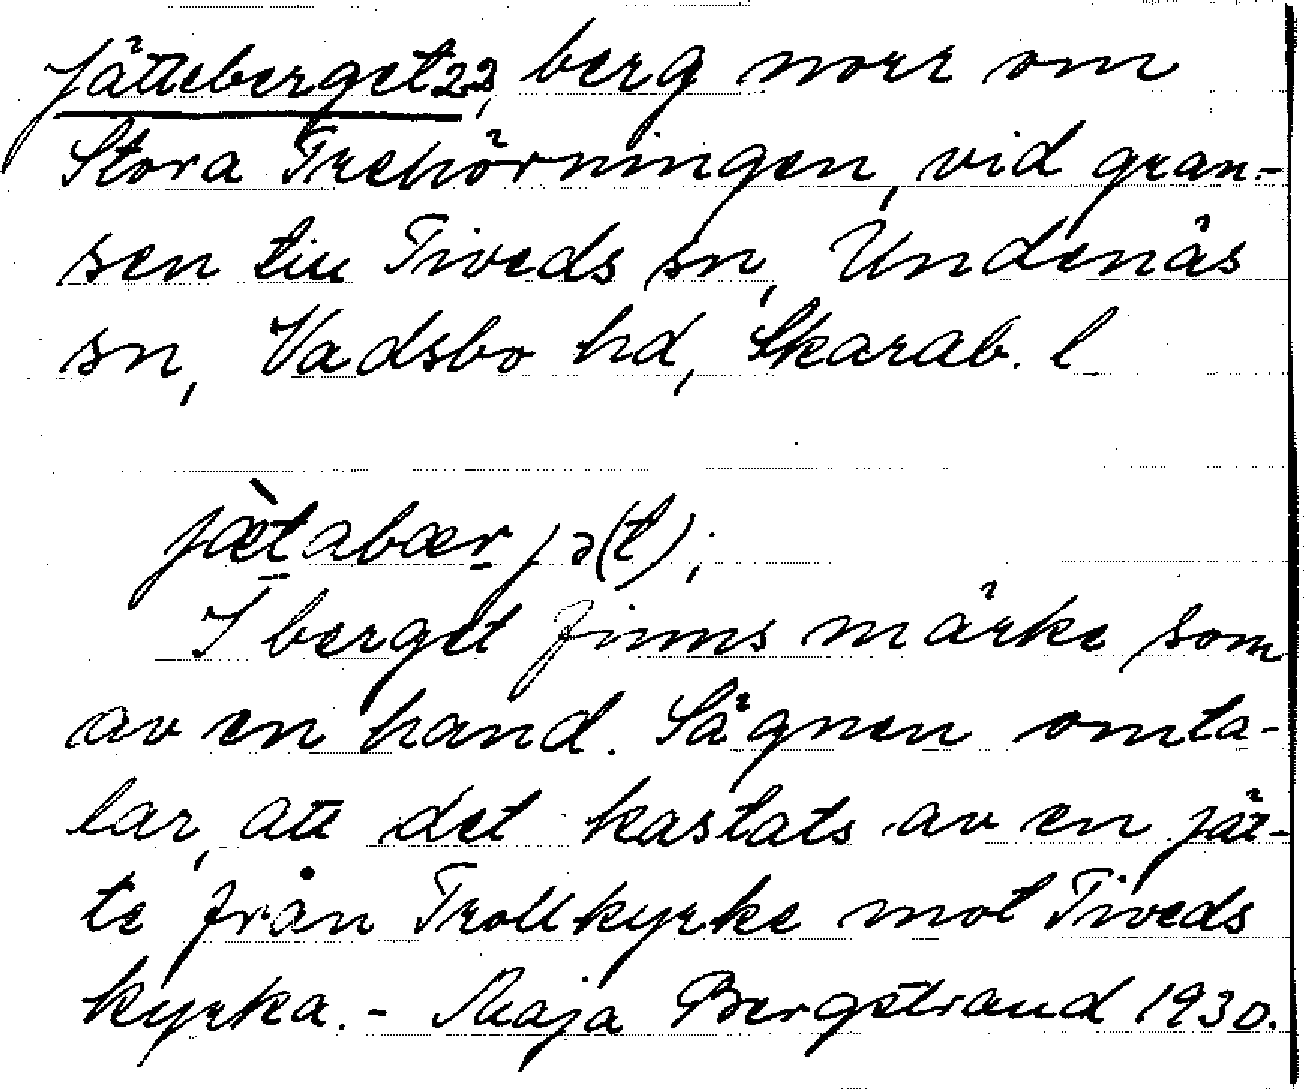 Jätteberget 22, berg norr om
Stora Trehörningen, vid grän-
sen till Tiveds sn, Undenäs
sn, Vadsbo hd, Skarab. l
jætabærjə(t);
I berget finns märke som
av en hand. Sägnen omta-
lar, att det kastats av en jät-
te från Trollkyrke mot Tiveds
kyrka. - Maja Bergstrand 1930.